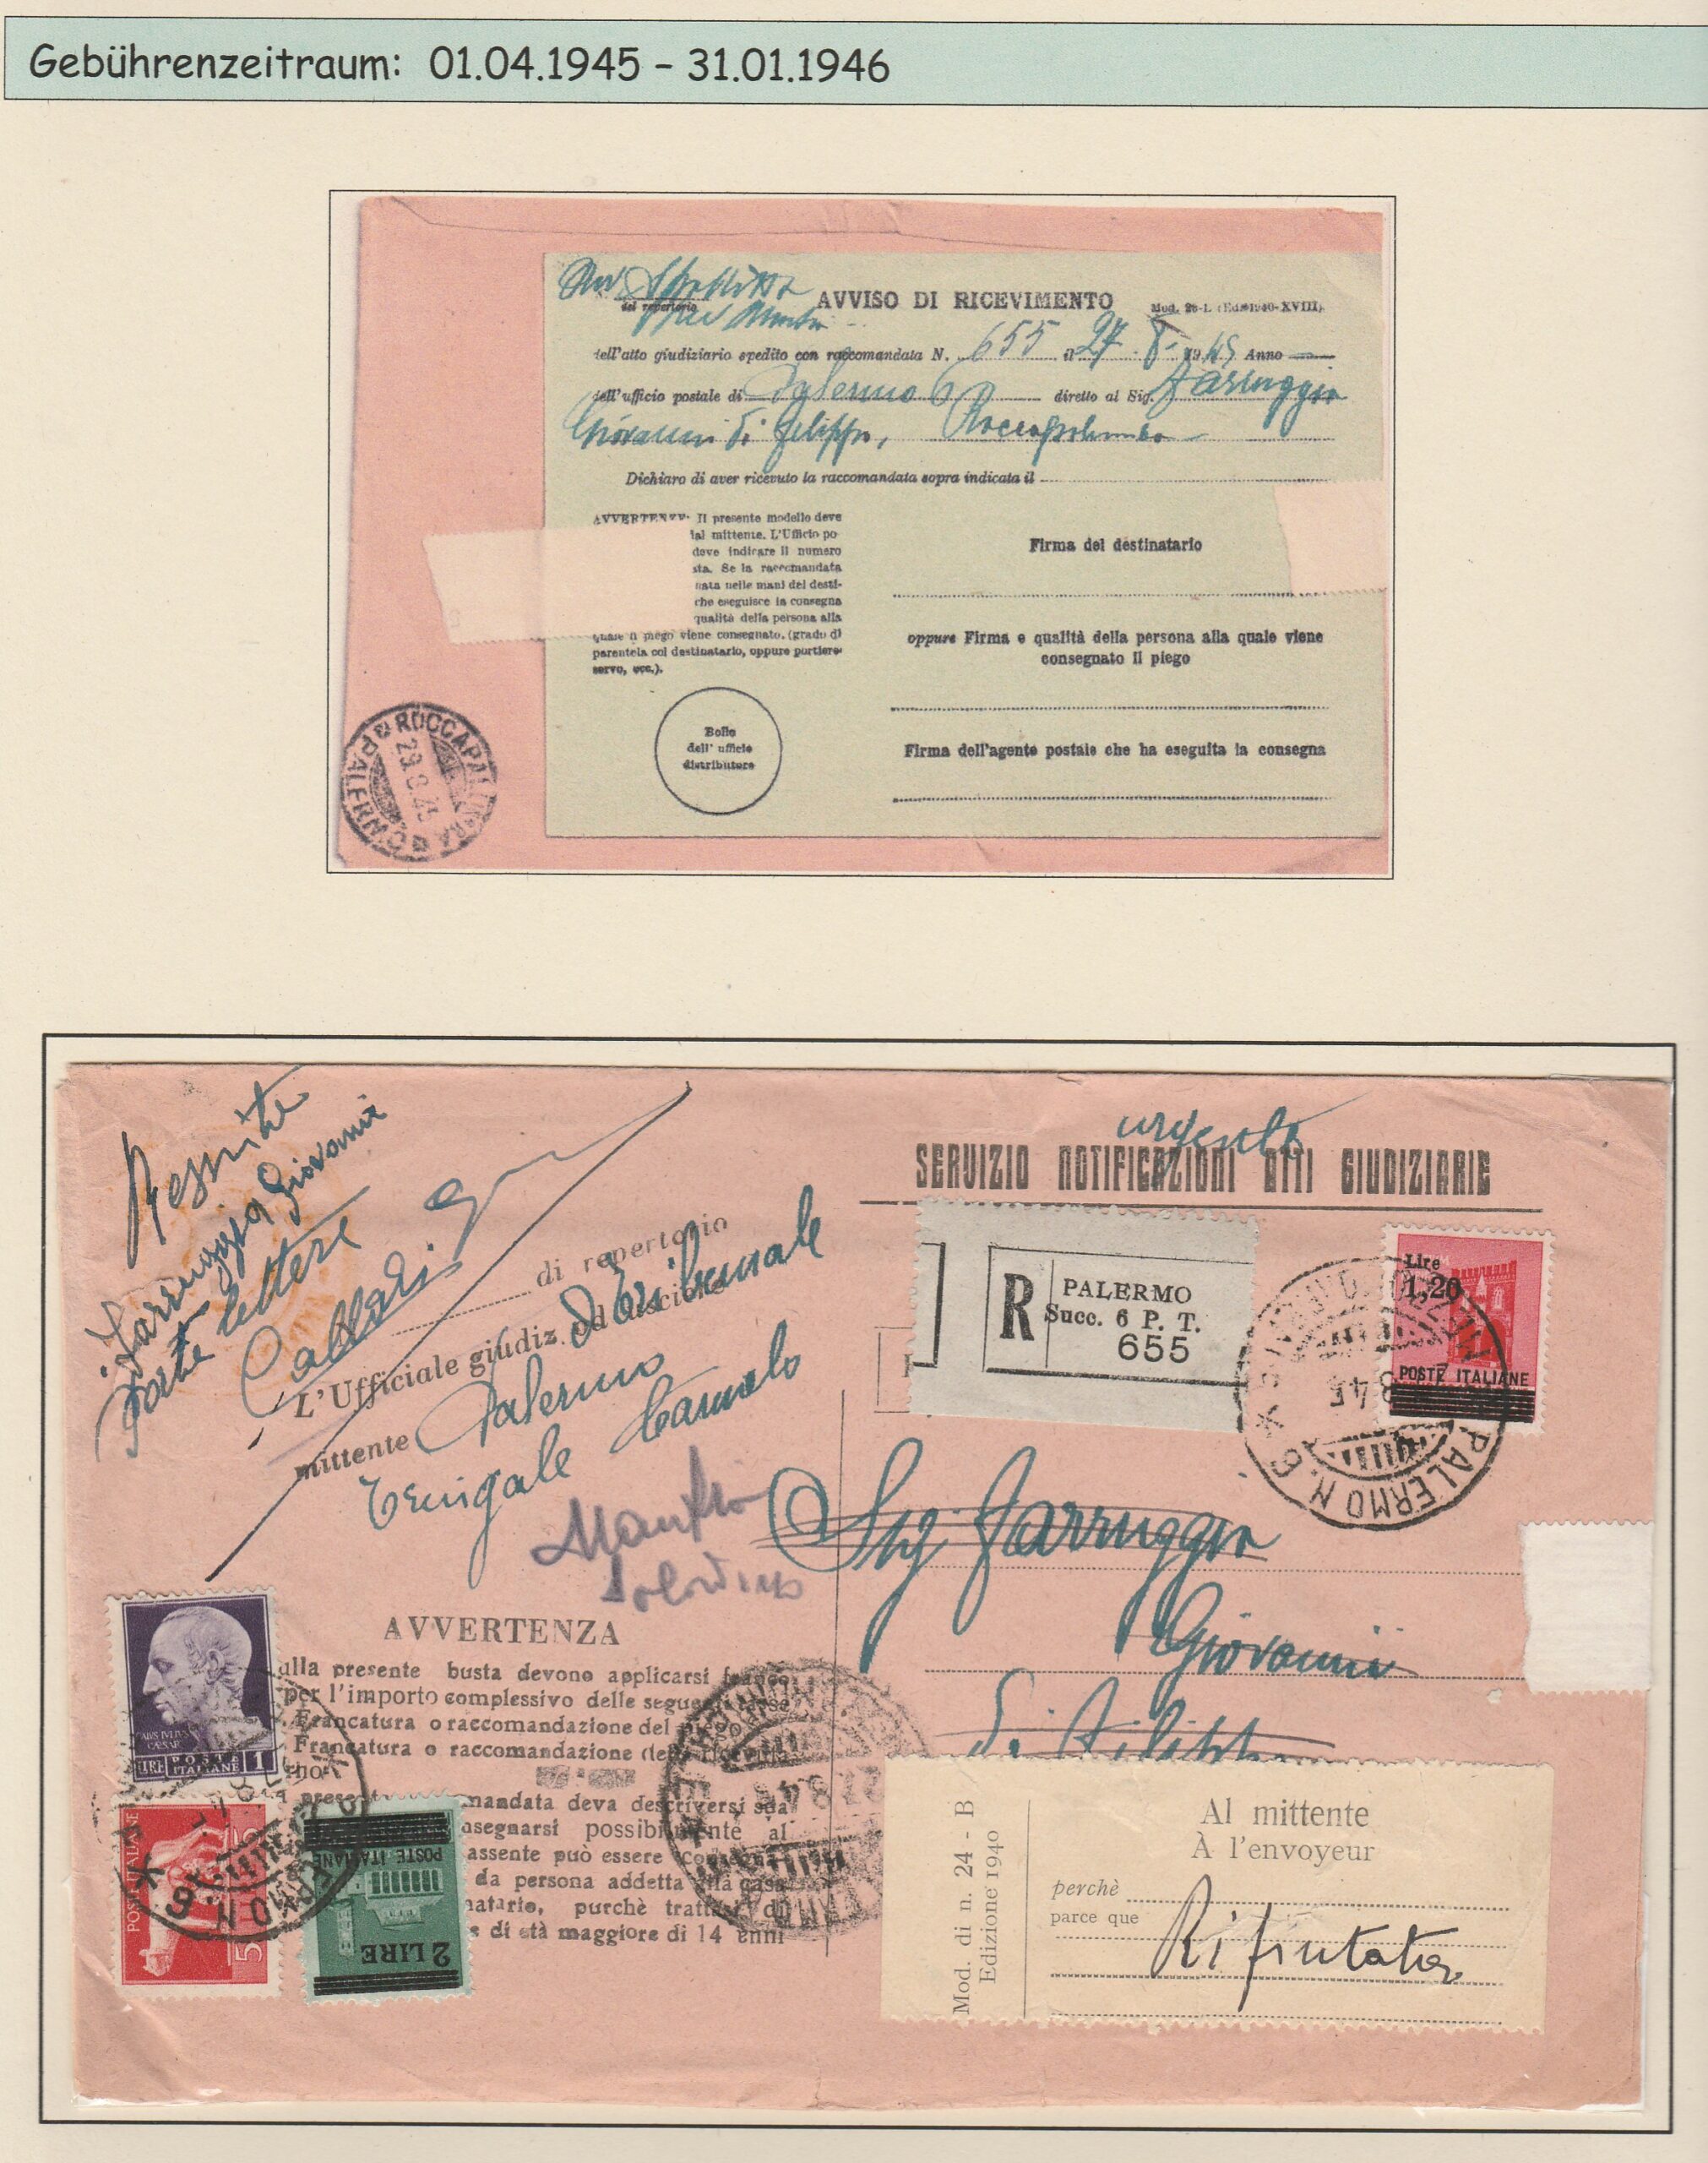 Gebührenzeitraum: 01.04.1945 – 31.01.1946
AVVISO DI RICEVIMENTO
Mod. 28-I. (Ediz. 1940-XVIII).
del repertorio
dell'atto giudiziario spedito con raccomandata N. 655 il 27 8 1945 Anno
dell'ufficio postale di Palermo 6 diretto al Sig. Farruggia
Giovanni di Filippo, Roccapalumba
Dichiaro di aver ricevuto la raccomandata sopra indicata il
AVVERTENZE: Il presente modello deve
al mittente. L'Ufficio po-
deve indicare il numero
sta. Se la raccomandata
nata nelle mani del desti-
che eseguisce la consegna
qualità della persona alla
quale il piego viene consegnato. (grado di
parentela col destinatario, oppure portiere
servo, ecc.).
Firma del destinatario
oppure Firma e qualità della persona alla quale viene
consegnato il piego
Firma dell'agente postale che ha eseguita la consegna
Bollo
dell' ufficio
distributore
ROCCAPALUMBA
(PALERMO)
29.8.45
urgente
SERVIZIO NOTIFICAZIONI ATTI GIUDIZIARIE
Farruggia Giovanni
lettere
di repertorio
L'Ufficiale giudiz. ad uscio
Tribunale
mittente Palermo
Carmelo
R
PALERMO
Succ. 6 P. T.
655
Lire
1,20
POSTE ITALIANE
PALERMO N. 6
Sig. Farruggia
Giovanni
di Filippo
AVVERTENZA
ulla presente busta devono applicarsi franco
per l'importo complessivo delle seguenti tasse
Francatura o raccomandazione del piego
Francatura o raccomandazione della ricevuta
rno
mandata deva descriversi sua
nsegnarsi possibilmente al
assente può essere conseg
da persona addetta alla casa
natario, purchè trattasi di
s di età maggiore di 14 anni
CAESAR
LIRE POSTE ITALIANE 1
POSTE ITALIANE
5
POSTE ITALIANE
2 LIRE
27.8.45
Mod. di n. 24 - B
Edizione 1940
Al mittente
À l'envoyeur
perchè
parce que
Rifiutata